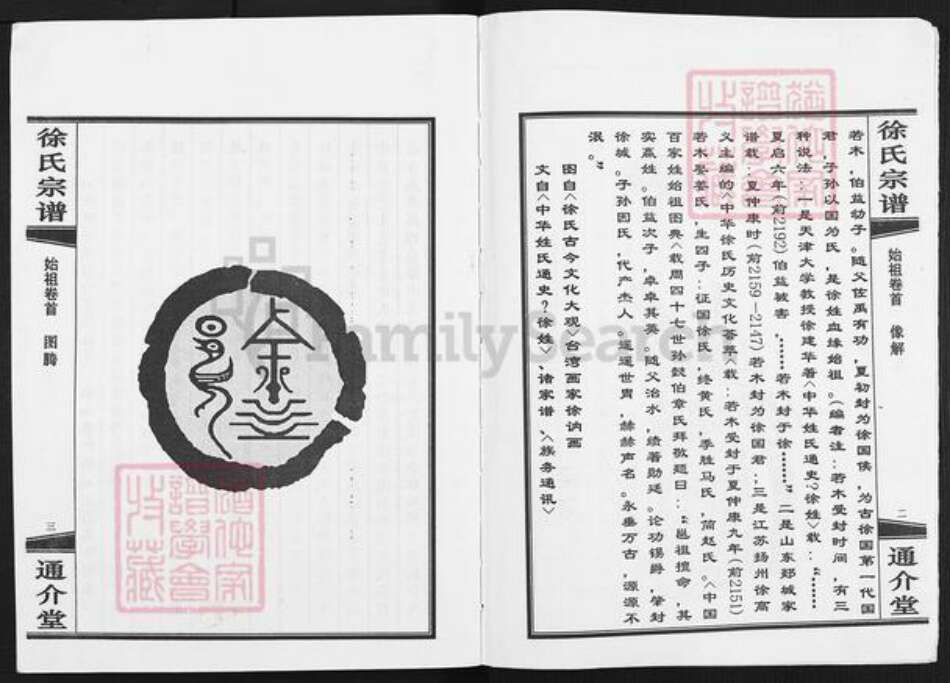 徐氏宗谱
始祖卷首 像解
二
通介堂
若木，伯益幼子。随父佐禹有功，夏初封为徐国侯，为古徐国第一代国
君，子孙以国为氏，是徐姓血缘始祖。（编者注：若木受封时间，有三
种说法：一是天津大学教授徐建华着〈中华姓氏通史?徐姓〉载：“……
夏启六年（前2192）伯益被害，……若木封于徐……”二是山东郯城家
谱载：夏仲康时（前2159—2147）若木封为徐国君…三是江苏扬州徐高
义主编的〈中华徐氏历史文化荟萃〉载：若木受封于夏仲康九年（前2151）
若木娶姜氏，生四子：征国徐氏，终黄氏，季胜马氏，简赵氏。〈中国
百家姓始祖图典〈载周四十七世孙懿伯章氏拜敬题曰：“邕祖擅命，其
实嬴姓。伯益次子，卓卓其英。随父治水，绩著勋廷。论功锡爵，肇封
徐城。子孙因氏，代产杰人。遥遥世胄，赫赫声名。永垂万古，源源不
泯。”
图自〈徐氏古今文化大观〉台湾画家徐讷画
文自〈中华姓氏通史?徐姓〉、诸家谱、〈族务通讯〉
徐氏宗谱
始祖卷首 图腾
三
通介堂
FamilySearch